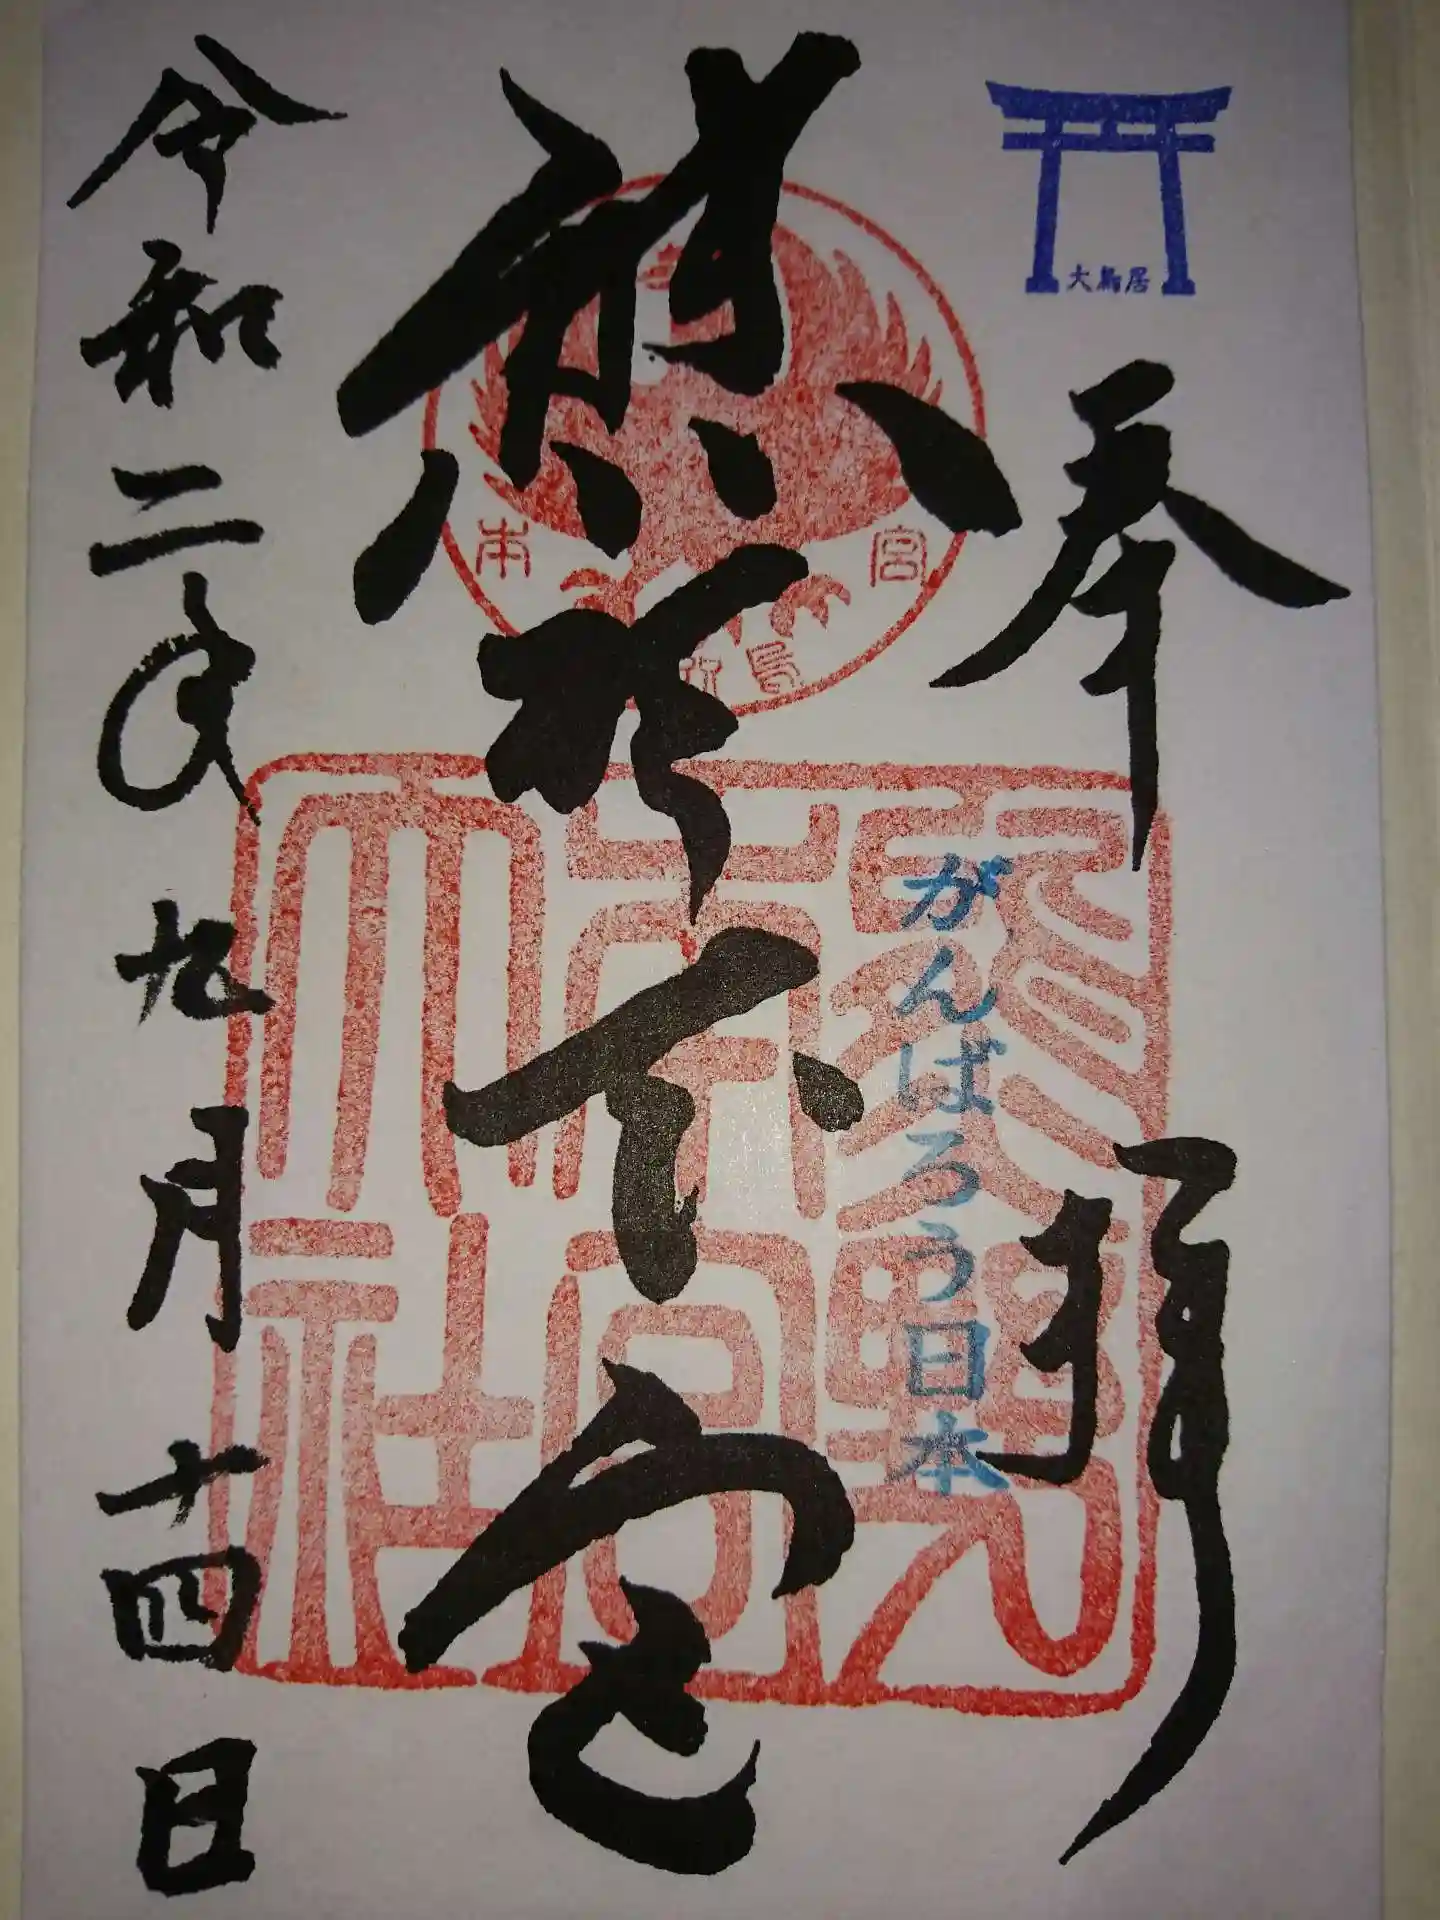 大鳥居
奉拝
がんばろう日本
熊野本宮
本宮
熊野本宮大社
令和二年九月十四日